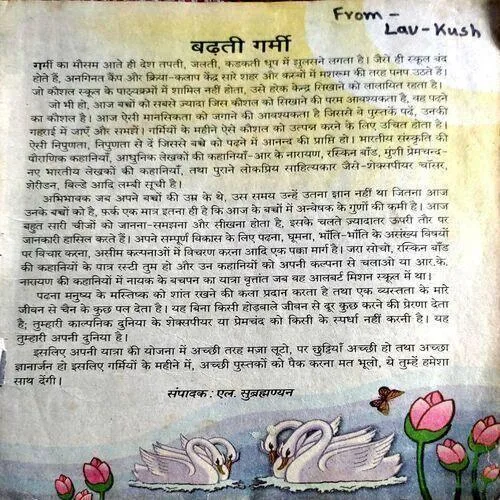 From -
Lav-Kush
बढ़ती गर्मी
गर्मी का मौसम आते ही देश तपती, जलती, कड़कती धूप में झुलसने लगता है। जैसे ही स्कूल बंद
होते हैं, अनगिनत कैंप और क्रिया-कलाप केंद्र सारे शहर और कस्बों में मशरूम की तरह पनप उठते हैं।
जो कौशल स्कूल के पाठ्यक्रमों में शामिल नहीं होता, उसे हरेक केन्द्र सिखाने को लालायित रहता है।
जो भी हो, आज बच्चों को सबसे ज़्यादा जिस कौशल को सिखाने की परम आवश्यकता है, वह पढ़ने
का कौशल है। आज ऐसी मानसिकता को जगाने की आवश्यकता है जिससे वे पुस्तकें पढ़ें, उनकी
गहराई में जाएँ और समझें। गर्मियों के महीने ऐसे कौशल को उत्पन्न करने के लिए उचित होता है।
ऐसी निपुणता, निपुणता से दें जिससे बच्चे को पढ़ने में आनन्द की प्राप्ति हो। भारतीय संस्कृति की
पौराणिक कहानियाँ, आधुनिक लेखकों की कहानियाँ-आर के नारायण, रस्किन बॉंड, मुंशी प्रेमचन्द-
नए भारतीय लेखकों की कहानियाँ, तथा पुराने लोकप्रिय साहित्यकार जैसे-शेक्सपीयर चॉसर,
शेरीडन, बिल्डे आदि लम्बी सूची है।
अभिभावक जब अपने बच्चों की उम्र के थे, उस समय उन्हें उतना ज्ञान नहीं था जितना आज
उनके बच्चों को है, फ़र्क एक मात्र इतना ही है कि आज के बच्चों में अन्वेषक के गुणों की कमी है। आज
बहुत सारी चीजों को जानना-समझना और सीखना होता है, इसके चलते ज़्यादातर ऊपरी तौर पर
जानकारी हासिल करते हैं। अपने सम्पूर्ण विकास के लिए पढ़ना, घूमना, भाँति-भाँति के असंख्य विषयों
पर विचार करना, असीम कल्पनाओं में विचरण करना आदि एक पक्का मार्ग है। जरा सोचो, रस्किन बॉंड
की कहानियों के पात्र रस्टी तुम हो और उन कहानियों को अपनी कल्पना से चलाओ या आर.के.
नारायण की कहानियों में नायक के बचपन का यात्रा वृतांत जब वह आलबर्ट मिशन स्कूल में था।
पढना मनुष्य के मस्तिष्क को शांत रखने की कला प्रदान करता है तथा एक व्यस्तता के मारे
जीवन से चैन के कुछ पल देता है। यह बिना किसी होड़वाले जीवन से दूर कुछ करने की प्रेरणा देता
है; तुम्हारी काल्पनिक दुनिया के शेक्सपीयर या प्रेमचंद को किसी के स्पर्धा नहीं करनी है। यह
तुम्हारी अपनी दुनिया है।
इसलिए अपनी यात्रा की योजना में अच्छी तरह मज़ा लूटो, पर छुट्टियाँ अच्छी हो तथा अच्छा
ज्ञानार्जन हो इसलिए गर्मियों के महीने में, अच्छी पुस्तकों को पैक करना मत भूलो, ये तुम्हें हमेशा
साथ देंगी।
संपादक : एल. सुब्रह्मण्यन